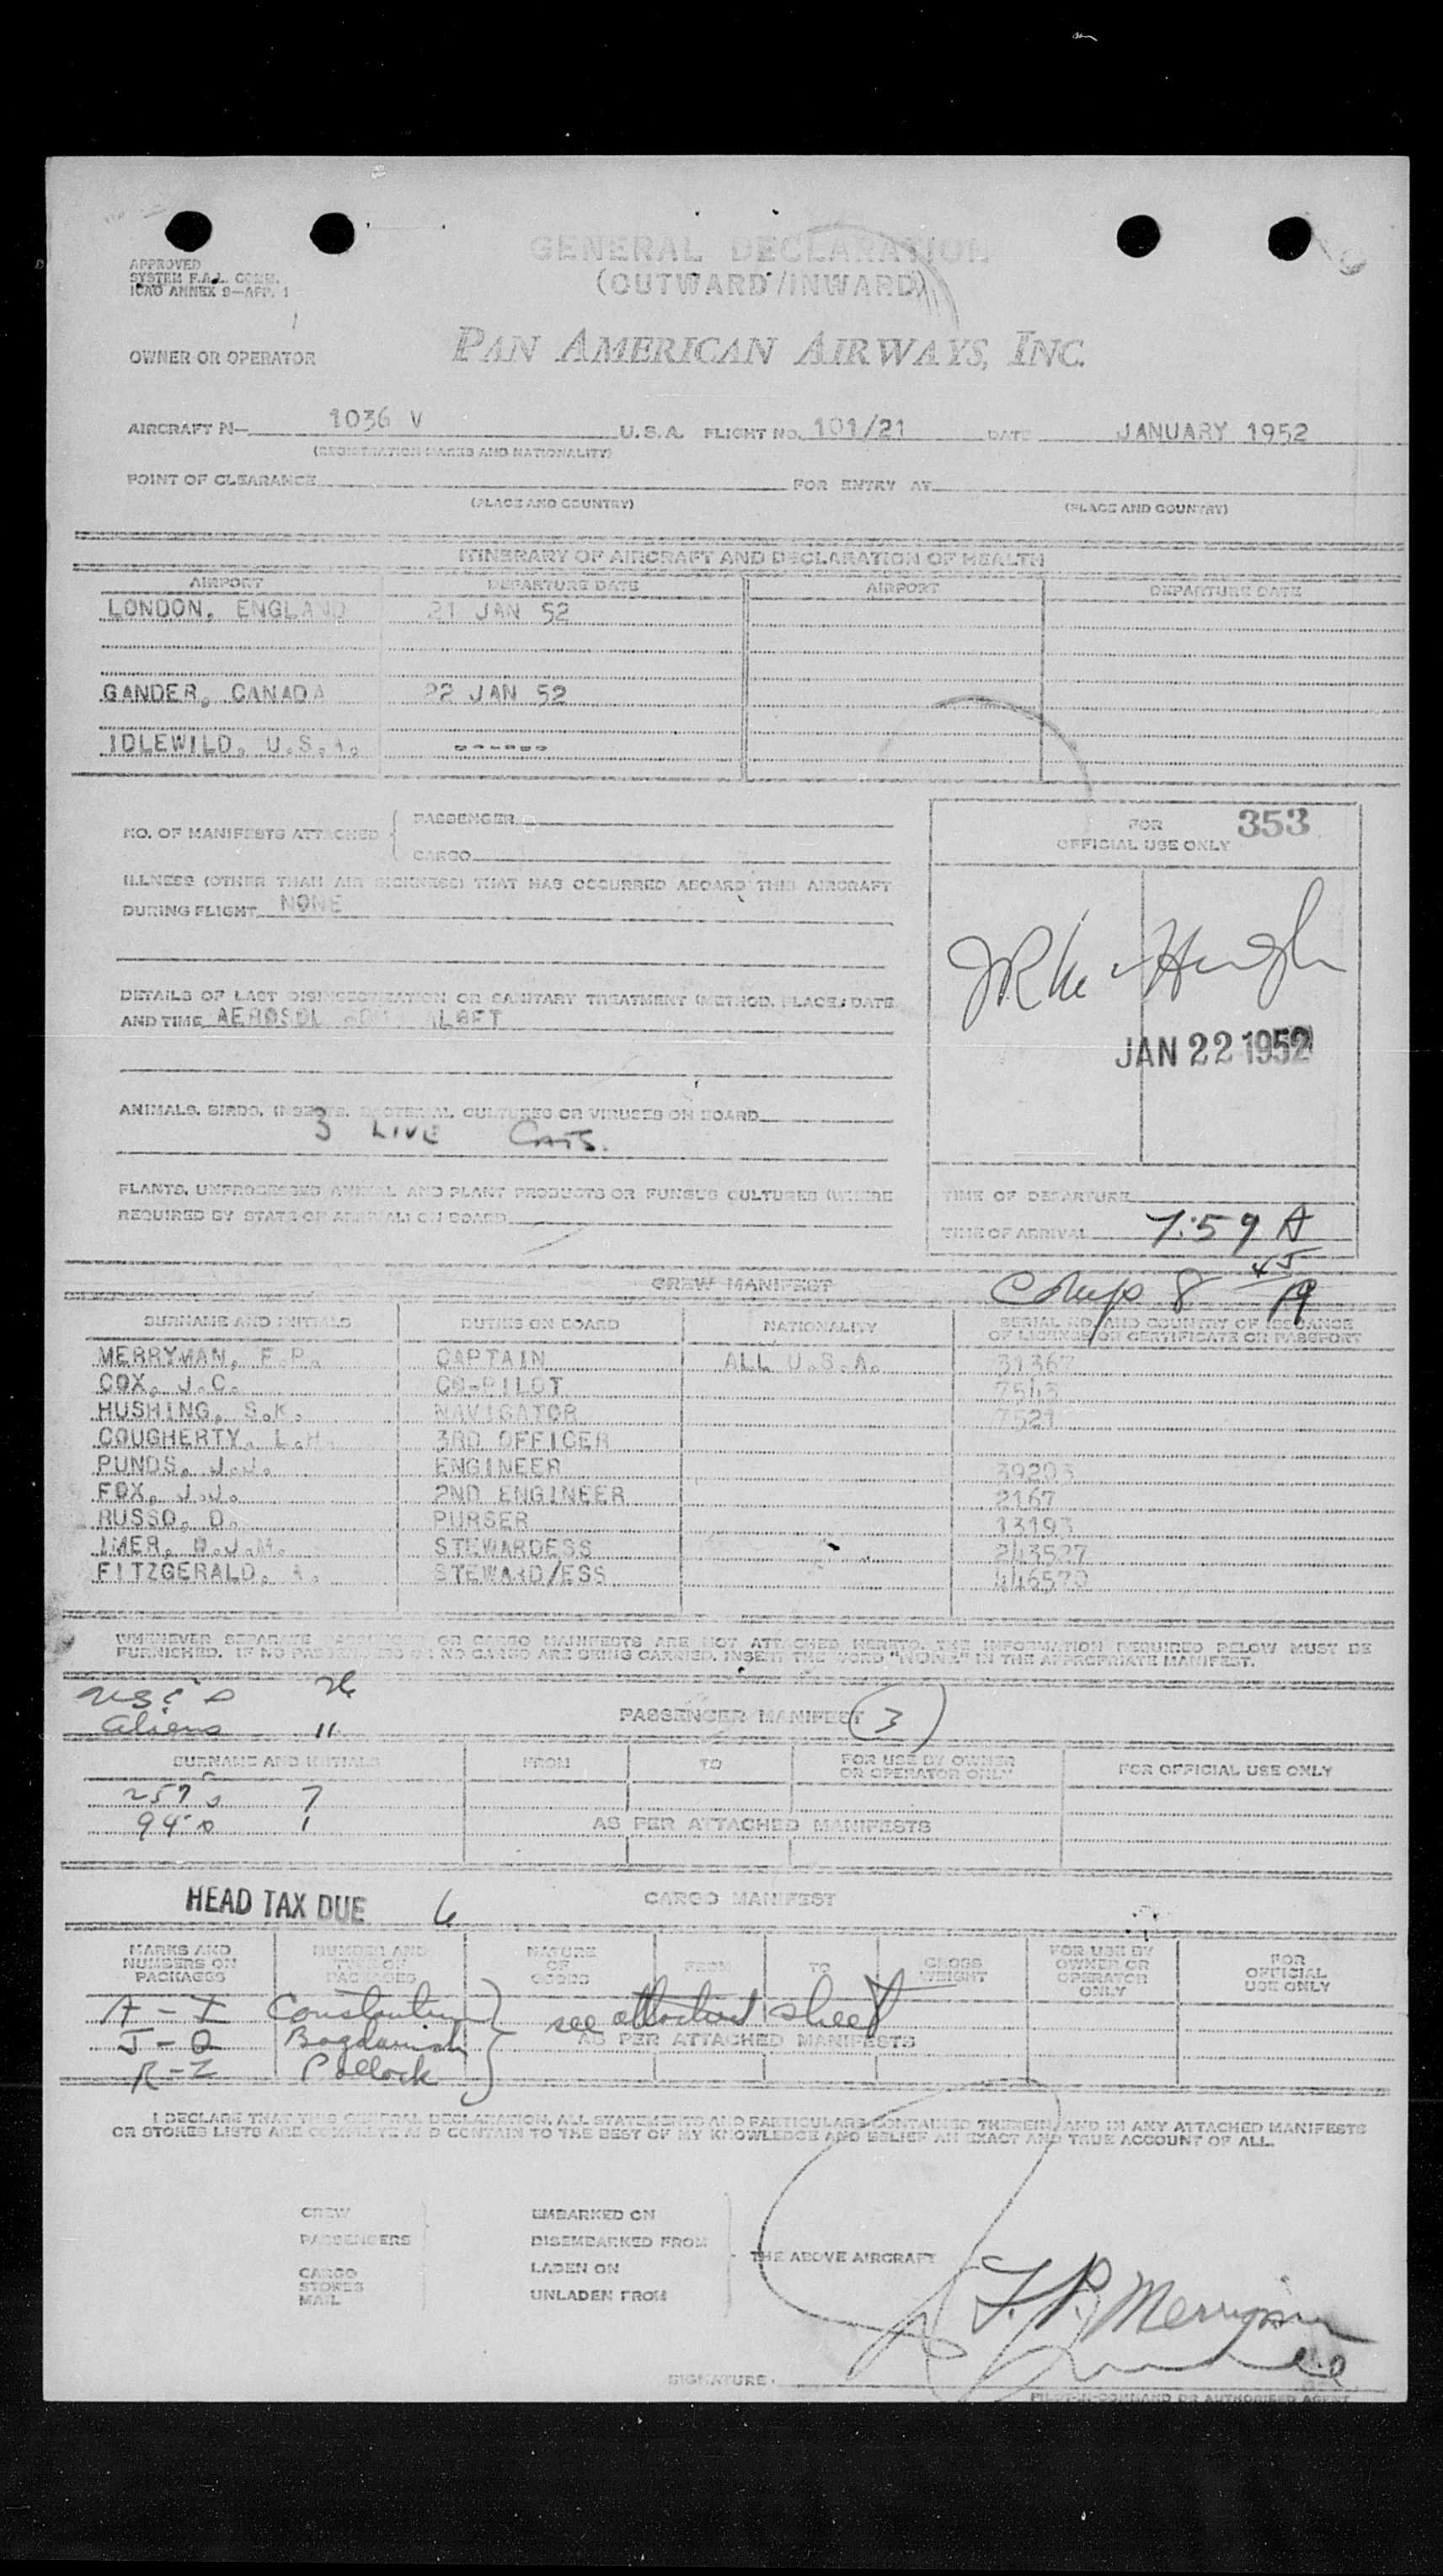 GENERAL DECLARATION
(OUTWARD/INWARD)
APPROVED
SYSTEM F.A.L. COMM.
ICAO ANNEX 9—APP. 1
OWNER OR OPERATOR PAN AMERICAN AIRWAYS, INC.
AIRCRAFT N— 1036 V U.S.A. FLIGHT NO. 101/21 DATE JANUARY 1952
(REGISTRATION MARKS AND NATIONALITY)
POINT OF CLEARANCE FOR ENTRY AT
(PLACE AND COUNTRY) (PLACE AND COUNTRY)
ITINERARY OF AIRCRAFT AND DECLARATION OF HEALTH
AIRPORT DEPARTURE DATE AIRPORT DEPARTURE DATE
LONDON, ENGLAND 21 JAN 52
GANDER, CANADA 22 JAN 52
IDLEWILD, U.S.A. ------
NO. OF MANIFESTS ATTACHED { PASSENGER
CARGO
FOR OFFICIAL USE ONLY 353
ILLNESS (OTHER THAN AIR SICKNESS) THAT HAS OCCURRED ABOARD THIS AIRCRAFT
DURING FLIGHT NONE
DETAILS OF LAST DISINSECTIZATION OR SANITARY TREATMENT (METHOD, PLACE, DATE
AND TIME AEROSOL
JAN 22 1952
ANIMALS, BIRDS, INSECTS, BACTERIAL CULTURES OR VIRUSES ON BOARD
3 LIVE CATS.
PLANTS, UNPROCESSED ANIMAL AND PLANT PRODUCTS OR FUNGUS CULTURES (WHERE
REQUIRED BY STATE OF ARRIVAL) ON BOARD
TIME OF DEPARTURE
TIME OF ARRIVAL 7:59 A
Comp 8 45/A
CREW MANIFEST
SURNAME AND INITIALS DUTIES ON BOARD NATIONALITY SERIAL NO. AND COUNTRY OF ISSUANCE
OF LICENSE OR CERTIFICATE OR PASSPORT
MERRYMAN, F.P. CAPTAIN ALL U.S.A. 31367
COX, J.C. CO-PILOT 7543
HUSHING, S.K. NAVIGATOR 7521
COUGHERTY, L.H. 3RD OFFICER
PUNDS, J.J. ENGINEER 39203
FOX, J.J. 2ND ENGINEER 2167
RUSSO, D. PURSER 13193
IMER, D.J.M. STEWARDESS 243527
FITZGERALD, A. STEWARD/ESS 446570
WHENEVER SEPARATE PASSENGER OR CARGO MANIFESTS ARE NOT ATTACHED HERETO, THE INFORMATION REQUIRED BELOW MUST BE
FURNISHED. IF NO PASSENGERS OR NO CARGO ARE BEING CARRIED, INSERT THE WORD "NONE" IN THE APPROPRIATE MANIFEST.
USC's 26
Aliens 11
PASSENGER MANIFEST 3
SURNAME AND INITIALS FROM TO FOR USE BY OWNER
OR OPERATOR ONLY FOR OFFICIAL USE ONLY
257s 7
94s 1
AS PER ATTACHED MANIFESTS
HEAD TAX DUE 6
CARGO MANIFEST
MARKS AND
NUMBERS ON
PACKAGES NUMBER AND
TYPE OF
PACKAGES NATURE
OF
GOODS FROM TO GROSS
WEIGHT FOR USE BY
OWNER OR
OPERATOR
ONLY FOR
OFFICIAL
USE ONLY
A - I
J - Q
R - Z Pollock
see attached sheet
AS PER ATTACHED MANIFESTS
I DECLARE THAT THIS GENERAL DECLARATION, ALL STATEMENTS AND PARTICULARS CONTAINED THEREIN, AND IN ANY ATTACHED MANIFESTS
OR STORES LISTS ARE COMPLETE AND CONTAIN TO THE BEST OF MY KNOWLEDGE AND BELIEF AN EXACT AND TRUE ACCOUNT OF ALL.
CREW
PASSENGERS
CARGO
STORES
MAIL
EMBARKED ON
DISEMBARKED FROM
LADEN ON
UNLADEN FROM
THE ABOVE AIRCRAFT
F. P. Merryman
SIGNATURE
PILOT-IN-COMMAND OR AUTHORISED AGENT